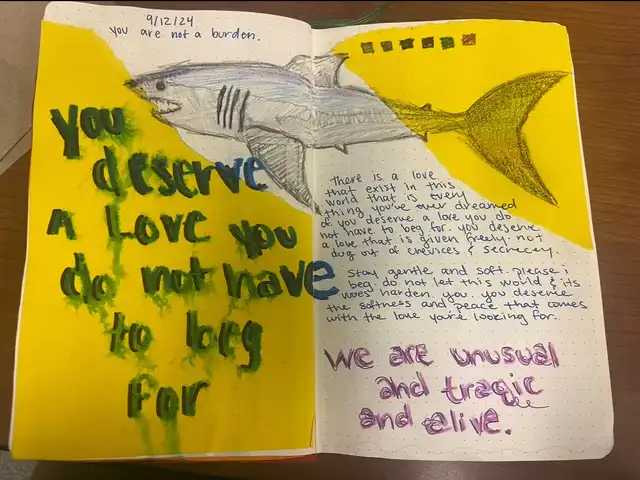 9/12/24
you are not a burden.
you
deserve
A Love you
do not have
to beg
For
there is a love
that exist in this
world that is every
thing you've ever dreamed
of. you deserve a love you do
not have to beg for. you deserve
a love that is given freely. not
dug out of crevices & secrecey.
Stay gentle and soft. please i
beg. do not let this world & its
woes harden you. you deserve
the softness and peace that comes
with the love you're looking for.
we are unusual
and tragic
and alive.